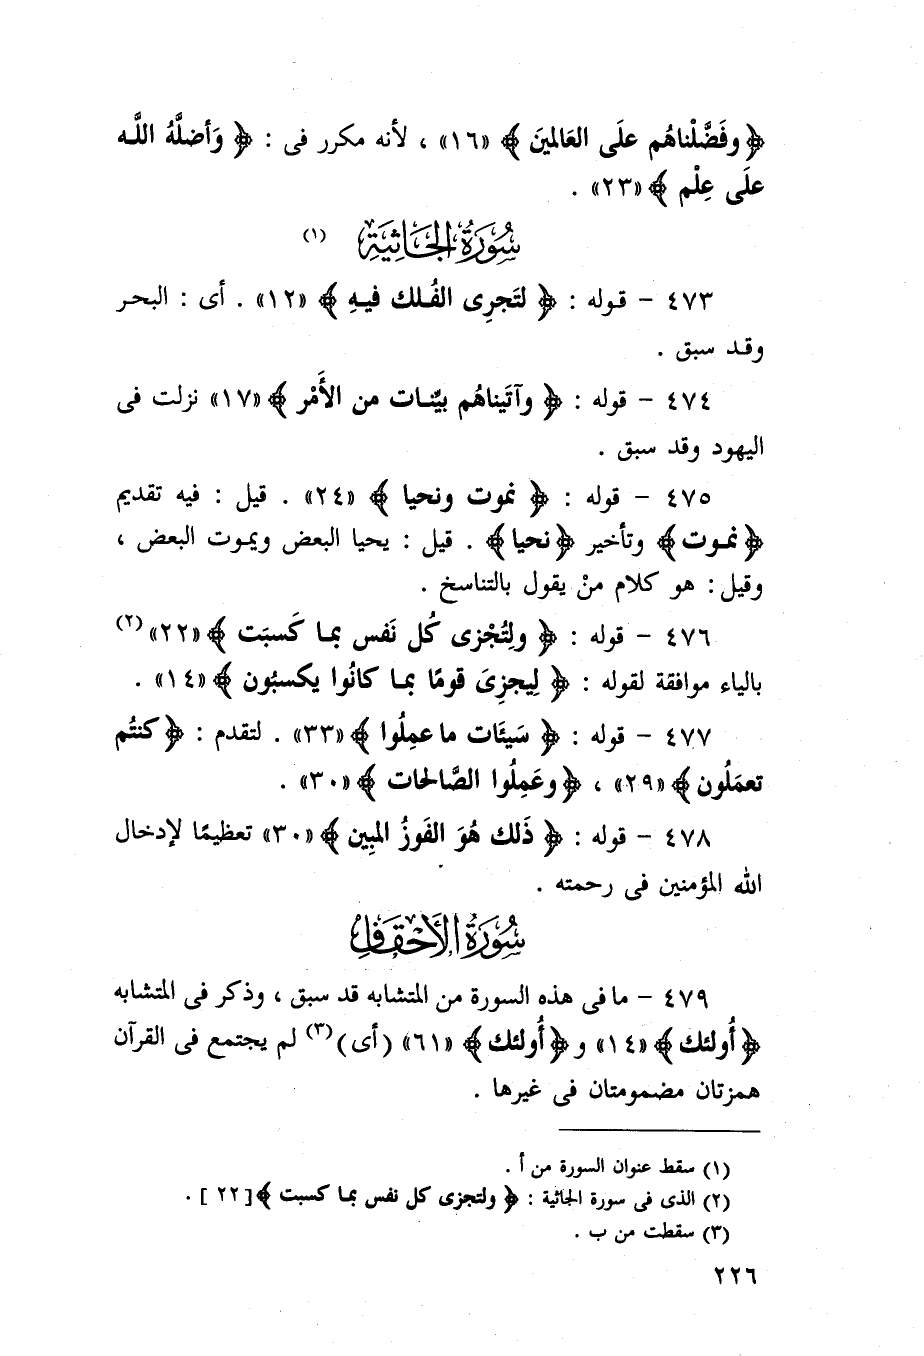 ﴿ وفَضَّلْناهُم علَى العَالمينَ ﴾ «١٦» ، لأنه مكرر فى : ﴿ وَأضلَّهُ اللَّـه
علَى عِلْم ﴾ «٢٣» .
سُورَةُ الجَاثِيَة (١)
٤٧٣ – قـوله : ﴿ لتَجرِى الفُـلك فيـهِ ﴾ «١٢» . أى : البحـر
وقـد سبق .
٤٧٤ – قوله : ﴿ وآتَيناهُم بيِّنـات من الأَمْر ﴾ «١٧» نزلت فى
اليهود وقد سبق .
٤٧٥ – قوله : ﴿ نموت ونحيا ﴾ «٢٤» . قيل : فيه تقديم
﴿ نمـوت ﴾ وتأخير ﴿ نحيا ﴾ . قيل : يحيا البعض ويموت البعض ،
وقيل : هو كلام منْ يقول بالتناسخ .
٤٧٦ – قوله : ﴿ ولِتُجْزى كُل نَفس بمـا كَسبَت ﴾ «٢٢» (٢)
بالياء موافقة لقوله : ﴿ لِيجزِىَ قومًا بمـا كانُوا يكسبُون ﴾ «١٤» .
٤٧٧ – قوله : ﴿ سَيئَات ما عمِلُوا ﴾ «٣٣» . لتقدم : ﴿ كنتُم
تعمَلُون ﴾ «٢٩» ، ﴿ وعَمِلُوا الصَّالحات ﴾ «٣٠» .
٤٧٨ – قوله : ﴿ ذَلك هُوَ الفَوزُ المبِين ﴾ «٣٠» تعظيمًا لإدخال
الله المؤمنين فى رحمته .
سُورَةُ الأَحْقَاف
٤٧٩ – ما فى هذه السورة من المتشابه قد سبق ، وذكر فى المتشابه
﴿ أُولئك ﴾ «١٤» و ﴿ أُولئك ﴾ «٦١» (أى) (٣) لم يجتمع فى القرآن
همزتان مضمومتان فى غيرها .
(١) سقط عنوان السورة من أ .
(٢) الذى فى سورة الجاثية : ﴿ ولتجزى كل نفس بمـا كسبت ﴾ [ ٢٢ ] .
(٣) سقطت من ب .
٢٢٦